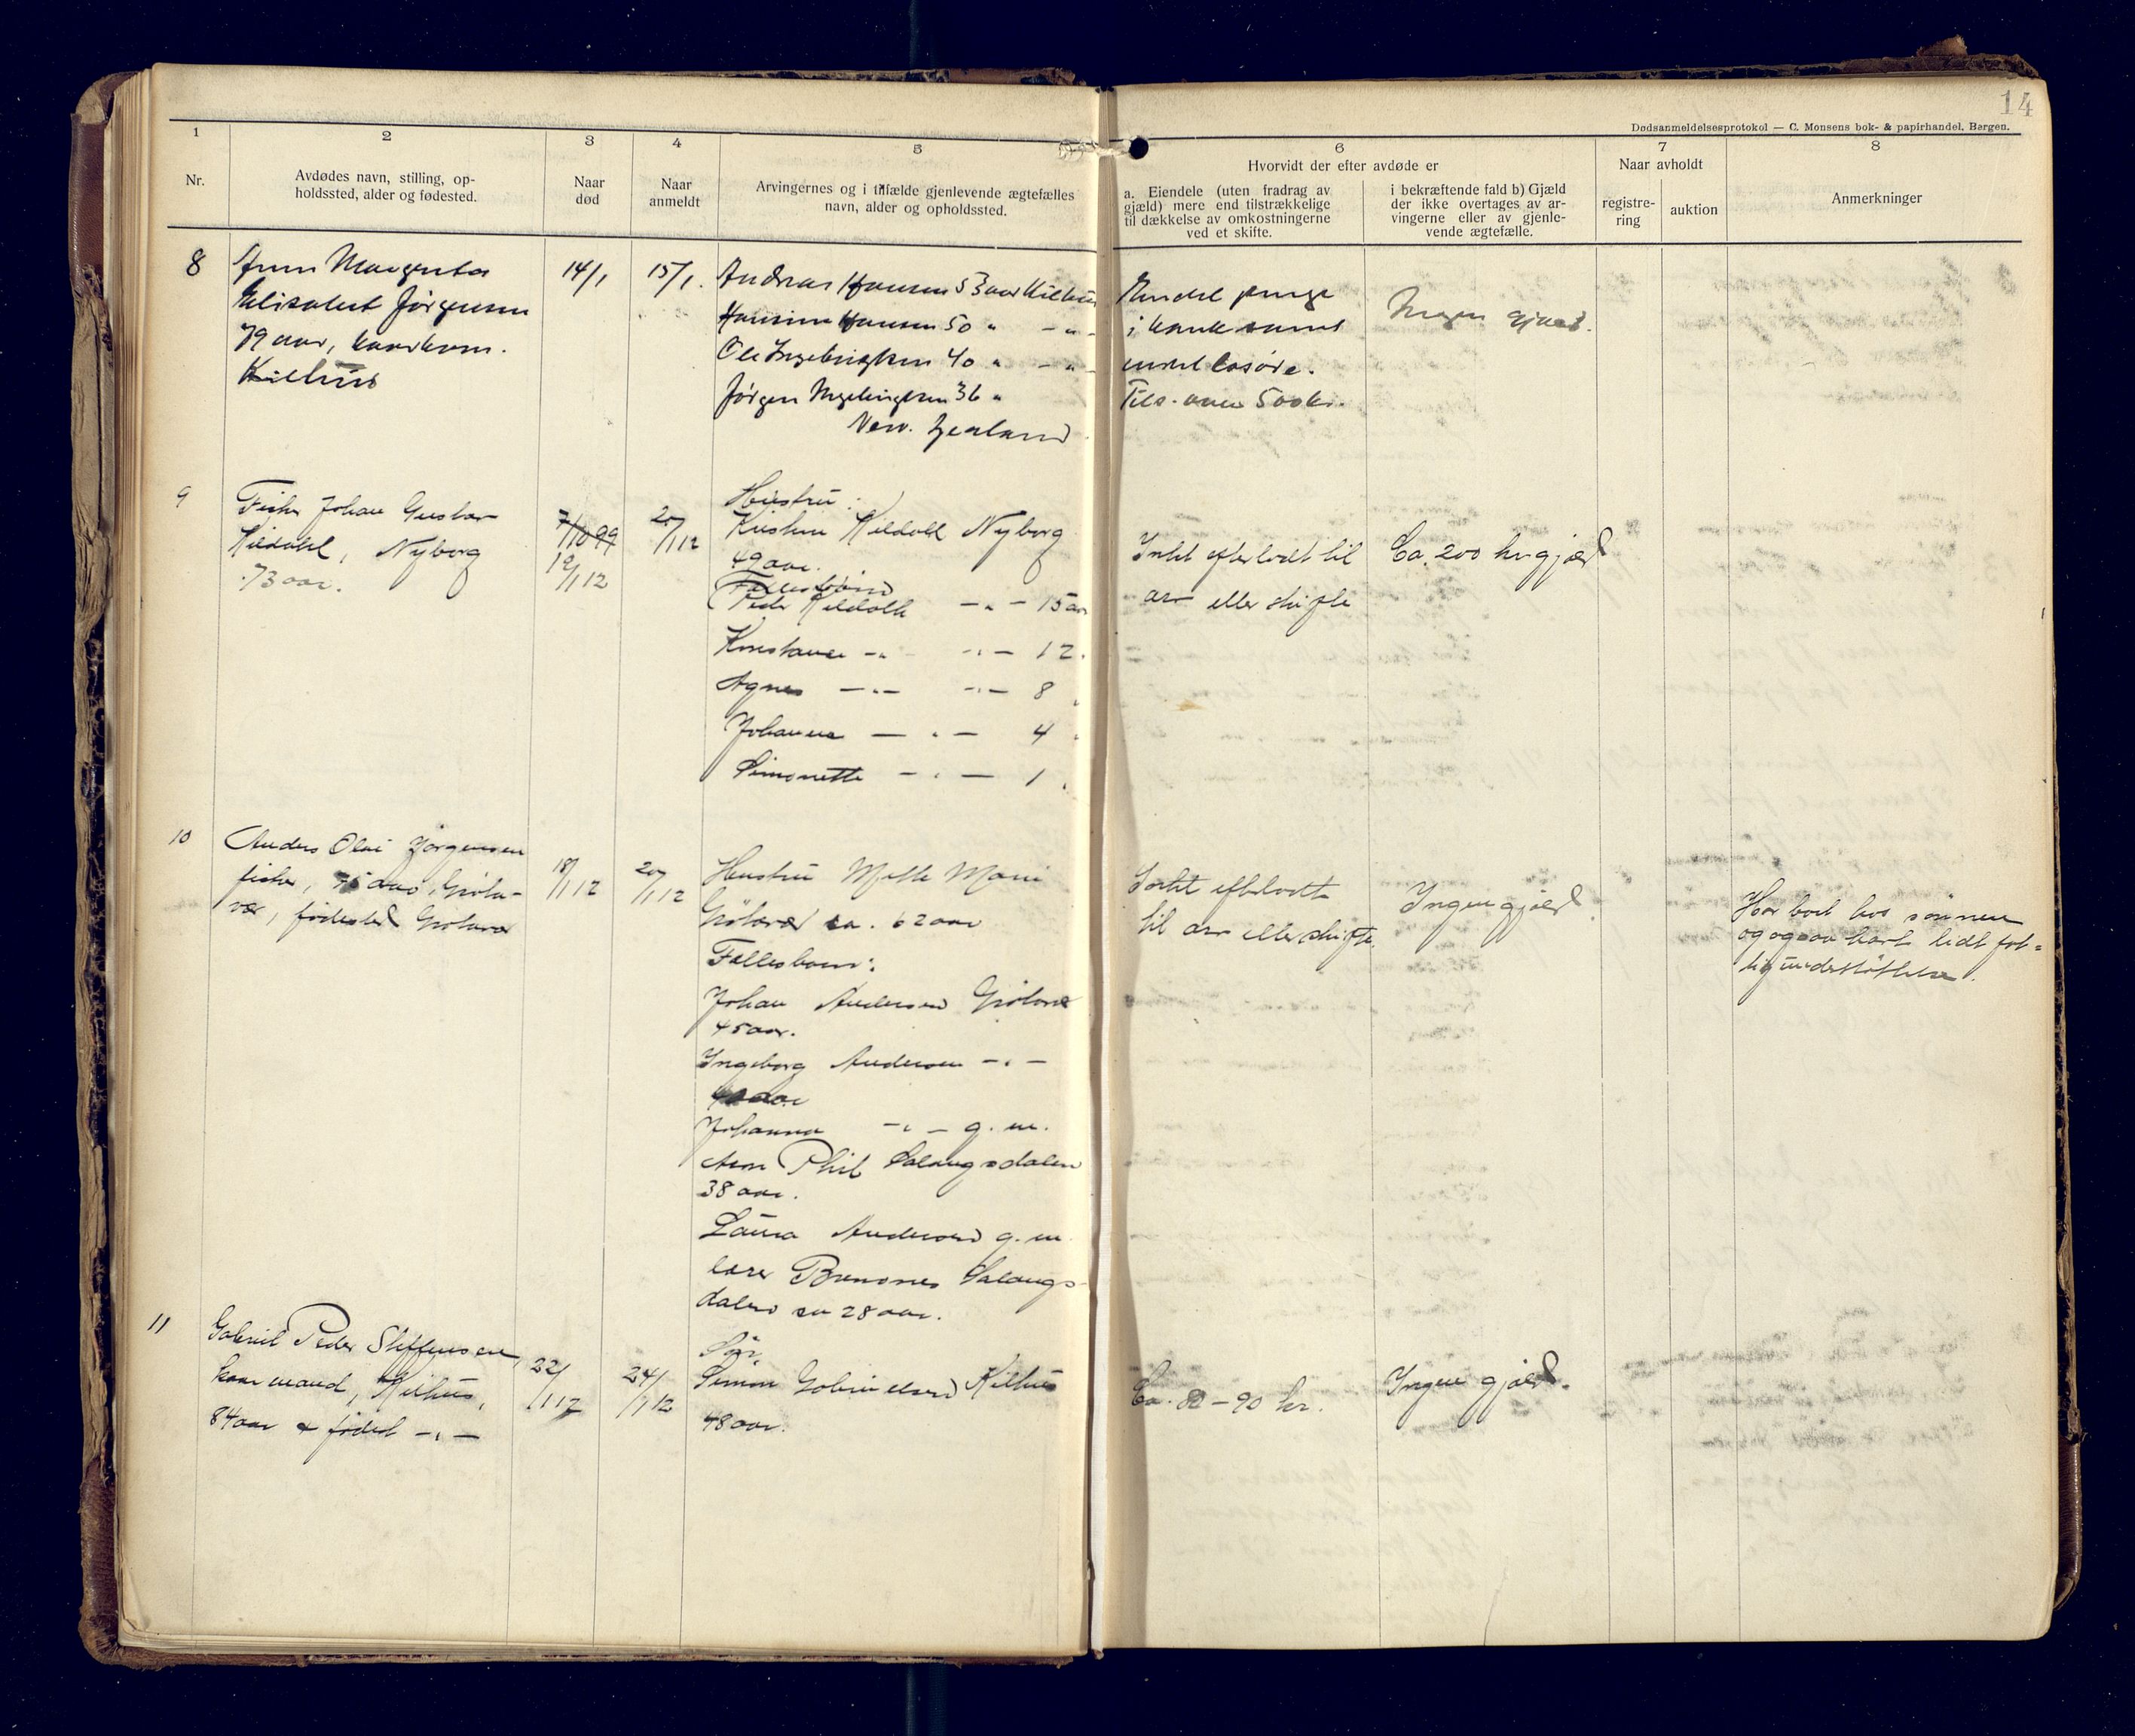 14
Dødsanmeldelsesprotokol — C. Monsens bok- & papirhandel, Bergen.
1
2
3
4
5
6
7
8
Nr.
Avdødes navn, stilling, op-
holdssted, alder og fødested.
Naar
død
Naar
anmeldt
Arvingernes og i tilfælde gjenlevende ægtefælles
navn, alder og opholdssted.
Hvorvidt der efter avdøde er
a. Eiendele (uten fradrag av
gjæld) mere end tilstrækkelige
til dækkelse av omkostningerne
ved et skifte.
i bekræftende fald b) Gjæld
der ikke overtages av ar-
vingerne eller av gjenle-
vende ægtefælle.
Naar avholdt
registre-
ring
auktion
Anmerkninger
8
Margreta
Elisabet Jørgensen
79 aar, kaarkone.
Kilhus
14/1
15/1.
Andreas Hansen 53 aar Kilhus
Hansine Hansen 50 " - " -
Ole Ingebrigtsen 40 " - " -
Jørgen Ingebrigtsen 36 "
New. Zealand
Endel penge
i bank samt
endel løsøre.
Tils. over 500 kr.
Ingen gjæld.
9
Fisker Johan Gustav
Kildahl, Nyborg
73 aar.
7/10 99
19/1 12
20/1 12
Hustru:
Kristine Kildahl Nyborg
49 aar.
Fællesbørn
Peder Kildahl — " — 15 aar
Konstance — " — " — 12 "
Agnes — " — " — 8 "
Johanna — " — 4 "
Simonette — " — 1 "
Intet efterladt til
arv eller skifte
Ca. 200 kr gjæld
10
Anders Olai Jørgensen
fisker, 75 aar, Grøla-
vær, fødested Grølavær
18/1 12
20/1 12
Hustru Mette Marie
Grølavær ca. 62 aar
Fællesbarn:
Johan Andersen Grølavær
45 aar.
Ingeborg Andersen — " —
Johanna — " — g. m.
Phil Salangsdalen
38 aar.
Laura Andersen g. m
lærer Salangs-
dalen ca 28 aar.
Intet efterladt
til arv eller skifte.
Ingen gjæld.
Har boet hos sønnen
og ogsaa havt lidt fat=
tigunderstøttelse.
11
Gabriel Peder Steffensen,
kaarmand, Kilhus,
84 aar & fødest — " —
22/1 12
24/1 12
Søn,
Simon Gabrielsen Kilhus
48 aar.
Ca. 80 — 90 kr.
Ingen gjæld.